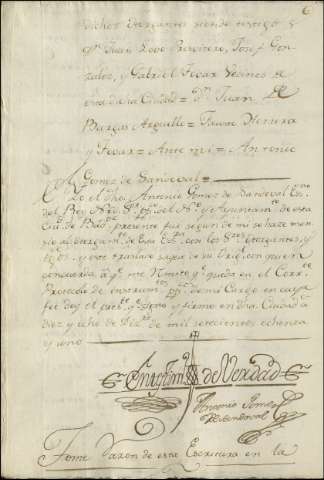 6
dichos otorgantes siendo testigos
Dn. Juan Lobo Presvitero, Josef Gon
zales, y Gabriel Tovar Vecinos de
esta dha Ciudad = Dn. Juan de
Vargas Arguello = Herrera
y Tovar = Ante mi = Antonio
Gomez de Sandoval =
Yo el dho Antonio Gomez de Sandoval Esno.
del Rey Nro. Sr. puco. del No. y Ayuntamto. de esta
Ciud. de presente fui segun de mi se haze men
sion al otorgamto. de esta Esra. con los Sres. Otorgantes, y
tgos. y este traslado saque de su Orig.l con quien
concuerda a q.e me Remito q.e queda en el Corrte.
Protocolo de instrumtos. pcos. de mi Cargo en cuya
fee doy el preste. q.e signo y firmo en dha Ciudad a
diez y ocho de de mil setecientos ochenta
y uno
En testimo. de Verdad
Antonio Gomez
de Sandoval
Tome Razon de esta Escritura en la